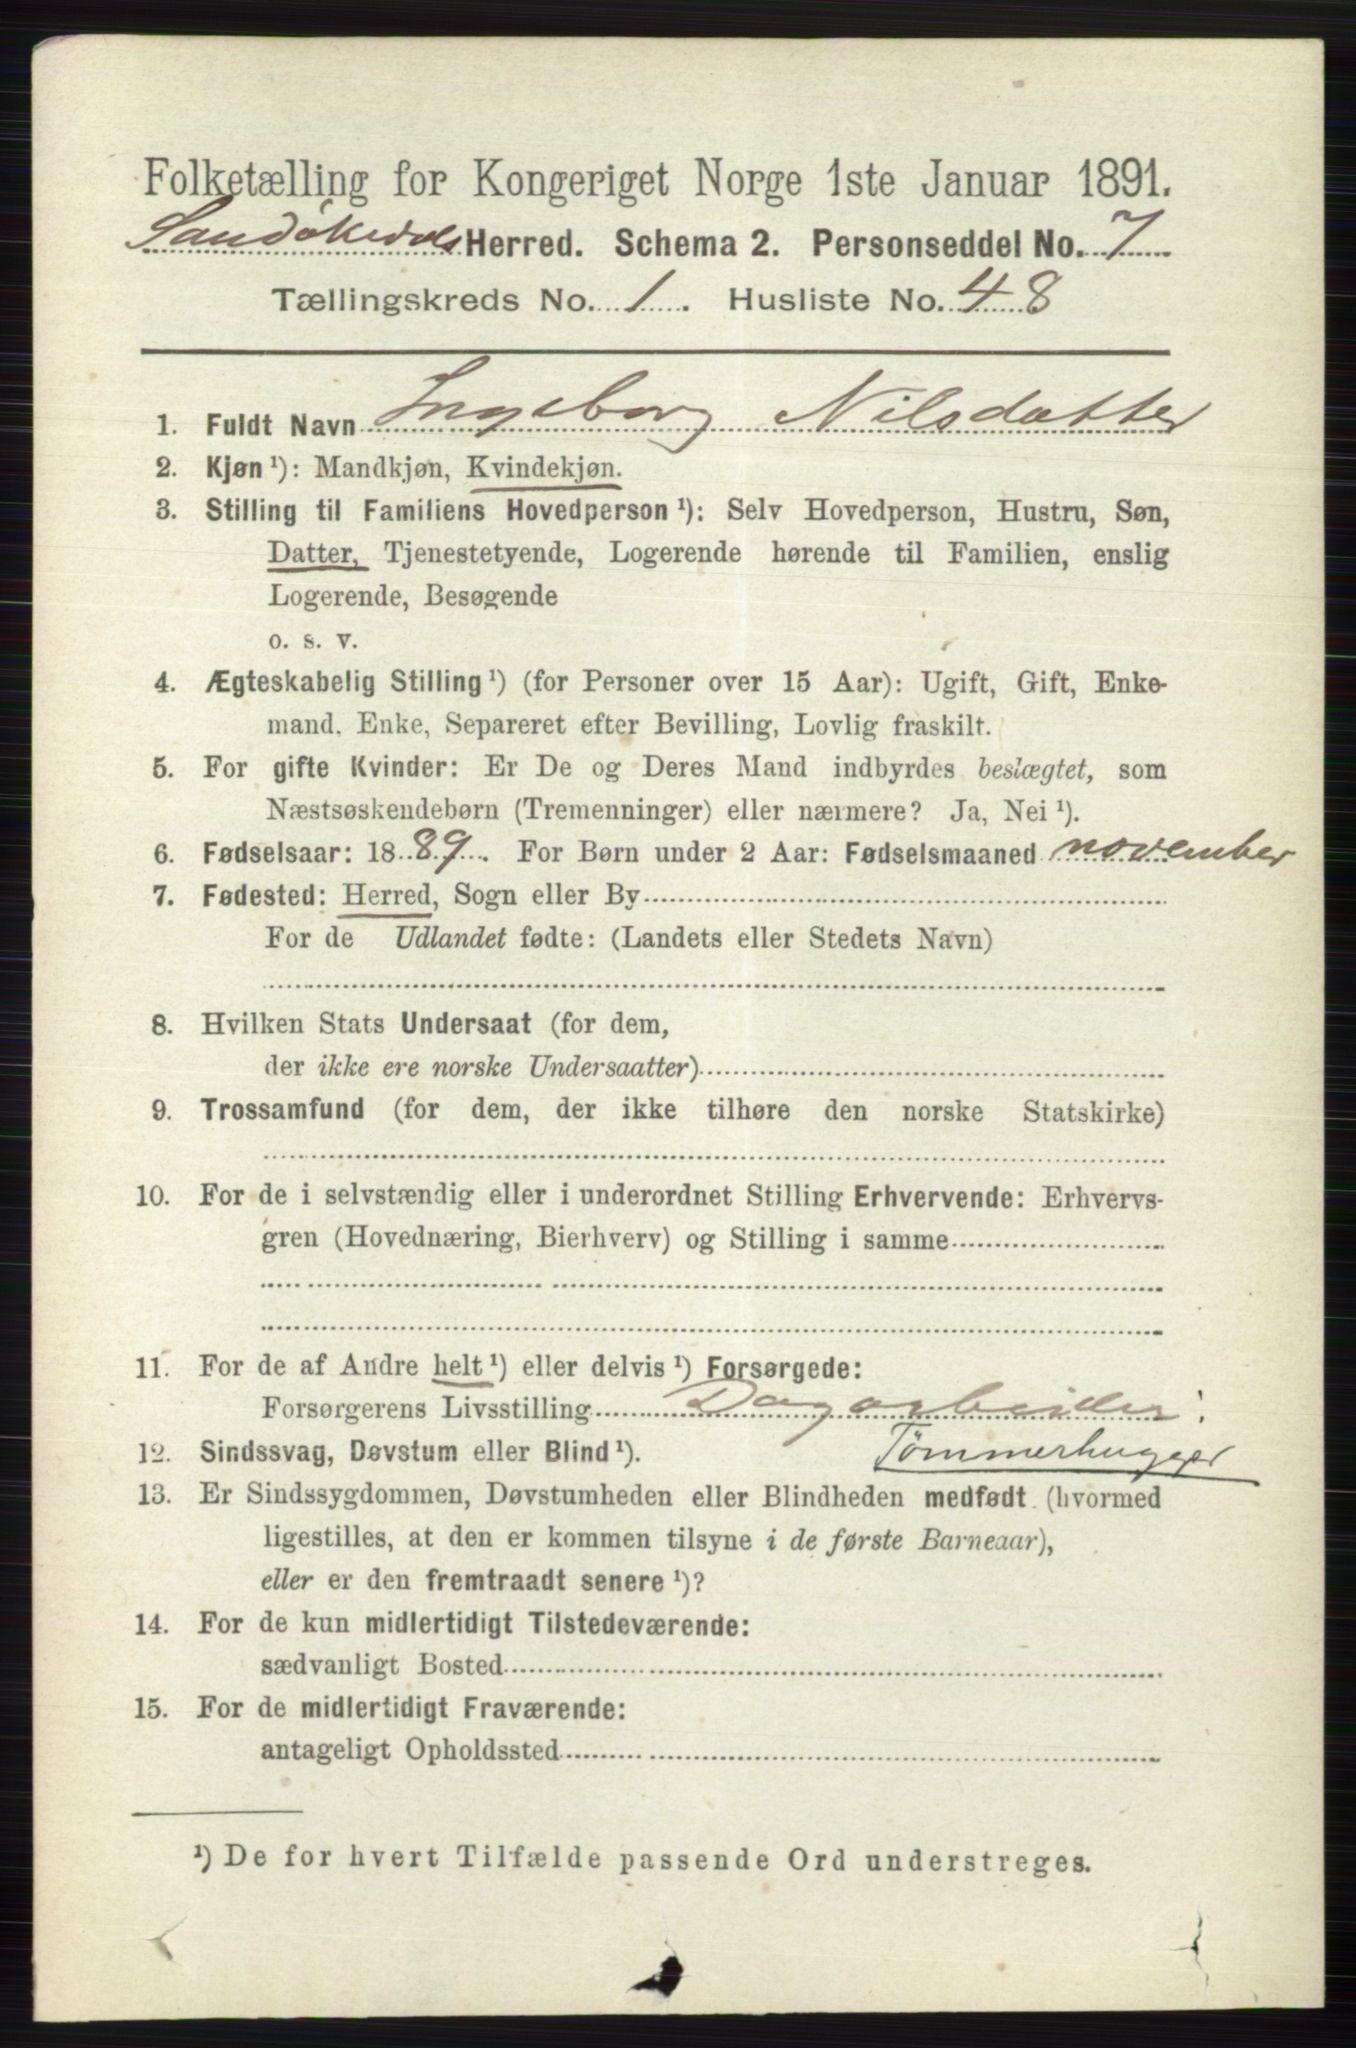 Folketælling for Kongeriget Norge 1ste Januar 1891.
Sandøkedals Herred. Schema 2. Personseddel No. 7
Tællingskreds No. 1. Husliste No. 48
1. Fuldt Navn Ingeborg Nilsdatter
2. Kjøn ¹): Mandkjøn, Kvindekjøn.
3. Stilling til Familiens Hovedperson ¹): Selv Hovedperson, Hustru, Søn,
Datter, Tjenestetyende, Logerende hørende til Familien, enslig
Logerende, Besøgende
o. s. v.
4. Ægteskabelig Stilling ¹) (for Personer over 15 Aar): Ugift, Gift, Enke-
mand, Enke, Separeret efter Bevilling, Lovlig fraskilt.
5. For gifte Kvinder: Er De og Deres Mand indbyrdes beslægtet, som
Næstsøskendebørn (Tremenninger) eller nærmere? Ja, Nei ¹).
6. Fødselsaar: 1889. For Børn under 2 Aar: Fødselsmaaned november
7. Fødested: Herred, Sogn eller By
For de Udlandet fødte: (Landets eller Stedets Navn)
8. Hvilken Stats Undersaat (for dem,
der ikke ere norske Undersaatter)
9. Trossamfund (for dem, der ikke tilhøre den norske Statskirke)
10. For de i selvstændig eller i underordnet Stilling Erhvervende: Erhvervs-
gren (Hovednæring, Bierhverv) og Stilling i samme
11. For de af Andre helt ¹) eller delvis ¹) Forsørgede:
Forsørgerens Livsstilling Dagarbeider:
12. Sindssvag, Døvstum eller Blind ¹). Tømmerhugger
13. Er Sindssygdommen, Døvstumheden eller Blindheden medfødt (hvormed
ligestilles, at den er kommen tilsyne i de første Barneaar),
eller er den fremtraadt senere ¹)?
14. For de kun midlertidigt Tilstedeværende:
sædvanligt Bosted
15. For de midlertidigt Fraværende:
antageligt Opholdssted
¹) De for hvert Tilfælde passende Ord understreges.